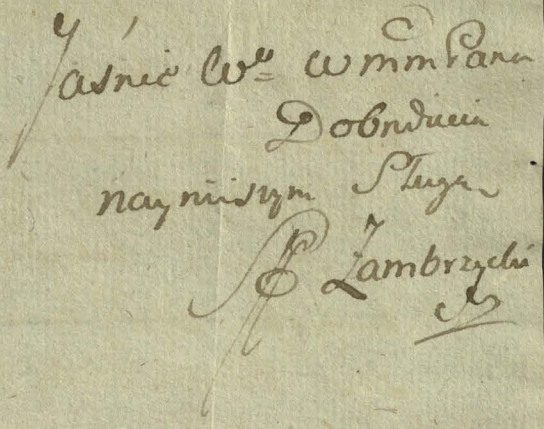 Jaśnie Wo WmmPana
Dobrodzieia
nayniższym Sługą
Zambrzycki